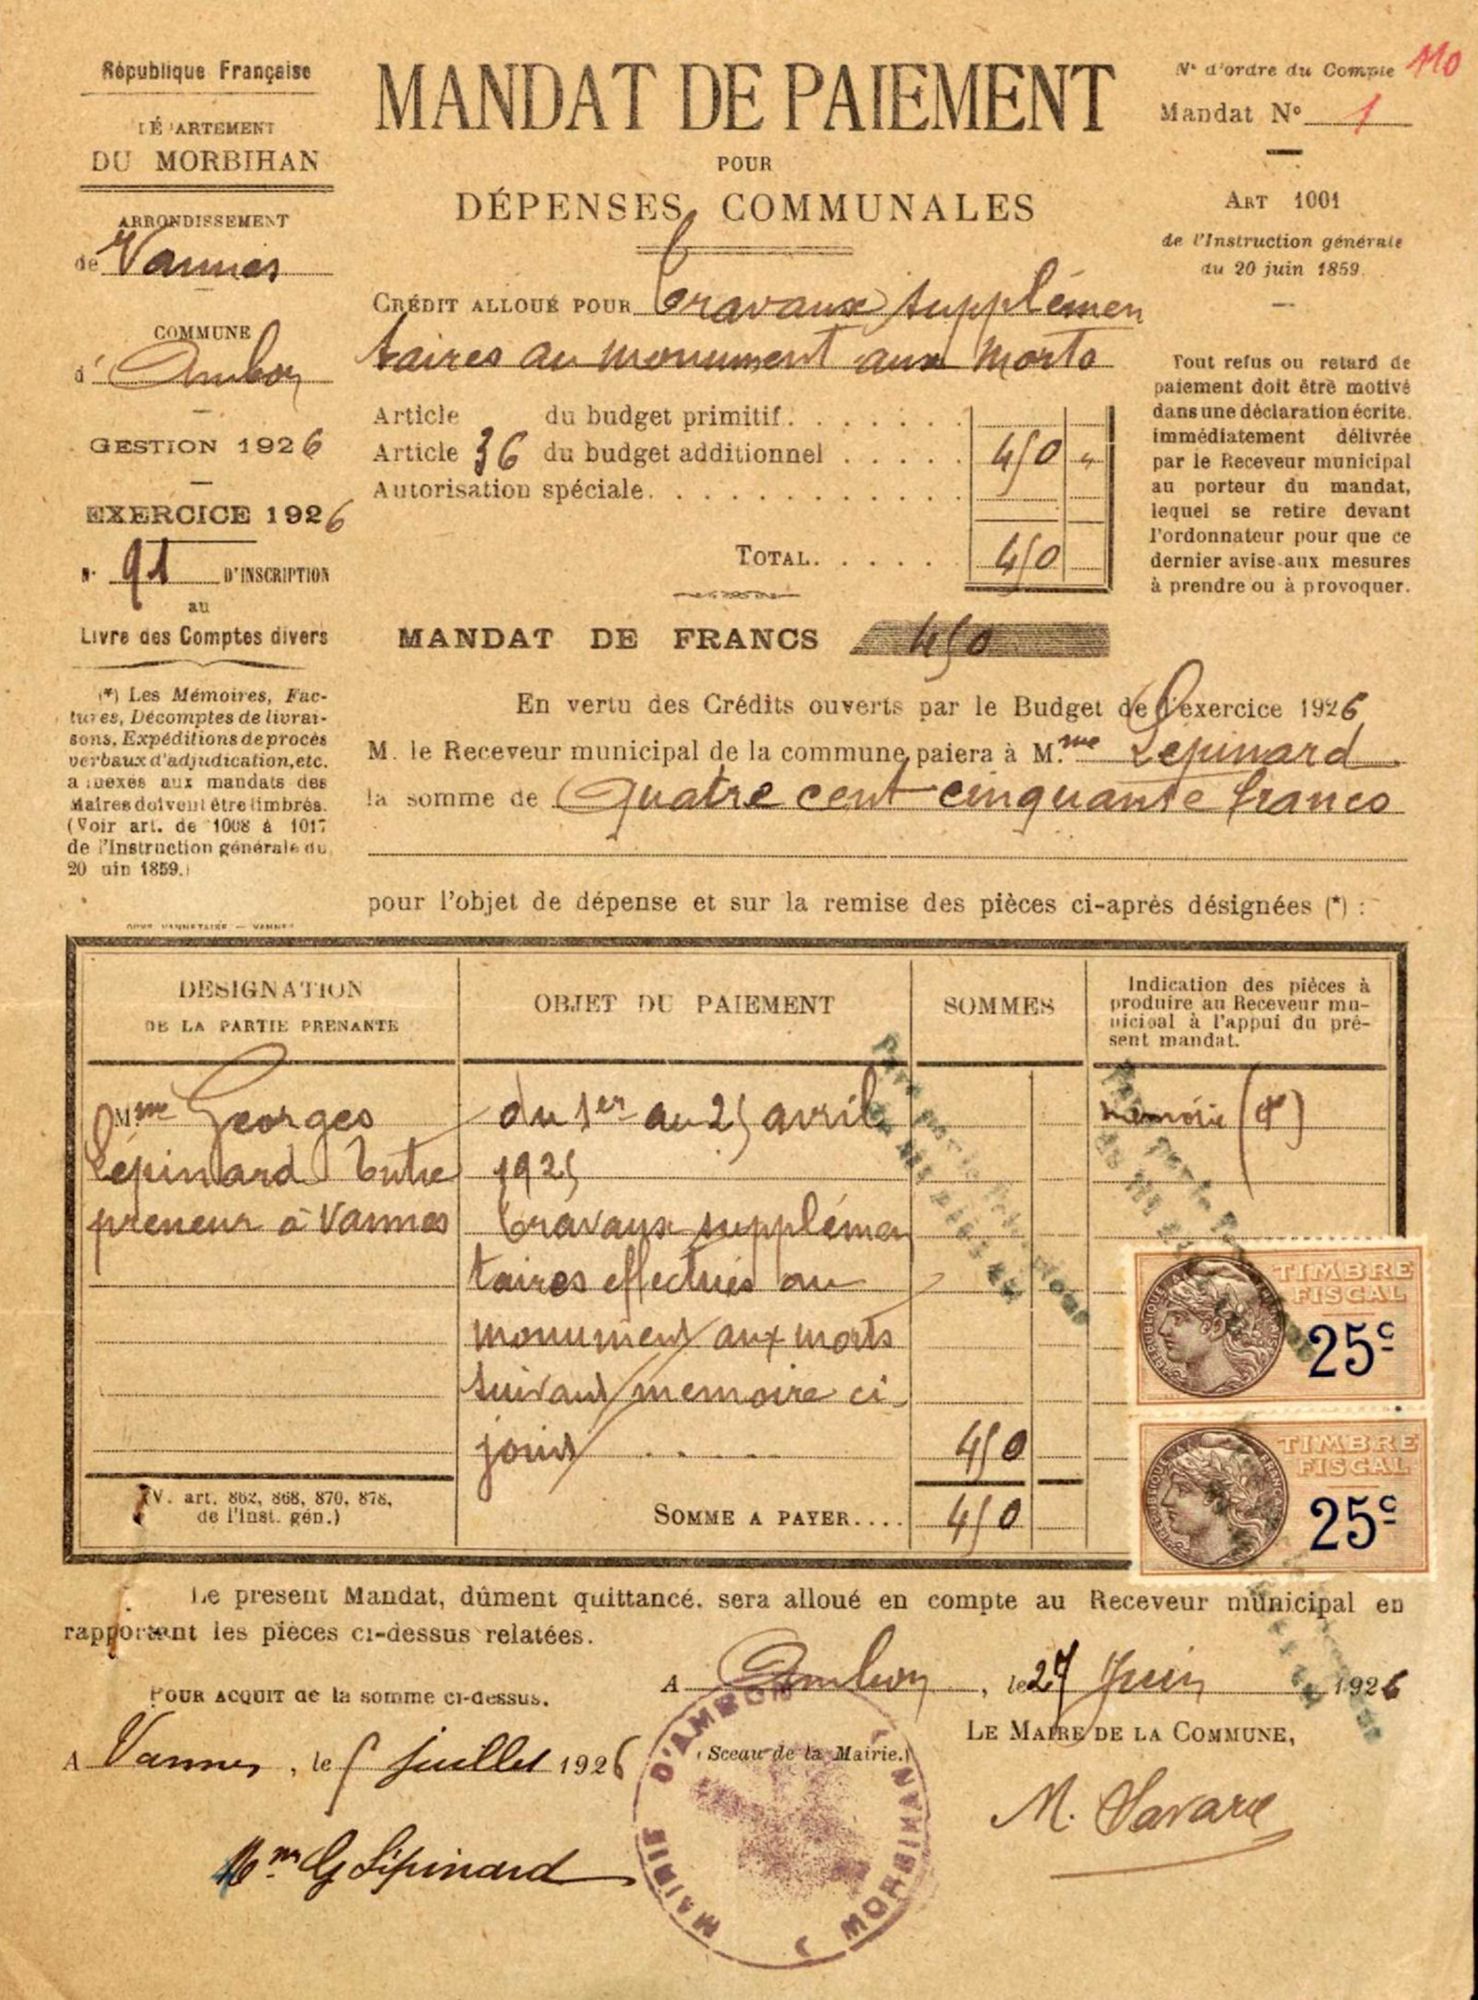 République Française
DÉPARTEMENT
DU MORBIHAN
ARRONDISSEMENT
de Vannes
COMMUNE
d' Ambon
GESTION 1926
EXERCICE 1926
N° 91 D'INSCRIPTION
au
Livre des Comptes divers
(*) Les Mémoires, Fac-
tures, Décomptes de livrai-
sons, Expéditions de procès
verbaux d'adjudication, etc.
annexés aux mandats des
Maires doivent être timbrés.
(Voir art. de 1008 à 1017
de l'Instruction générale du
20 juin 1859.)
MANDAT DE PAIEMENT
POUR
DÉPENSES COMMUNALES
CRÉDIT ALLOUÉ POUR Travaux supplémen
taires au monument aux morts
Article du budget primitif
Article 36 du budget additionnel 450 "
Autorisation spéciale
TOTAL 450
MANDAT DE FRANCS 450
N° d'ordre du Compte 110
Mandat N° 1
ART 1001
de l'Instruction générale
du 20 juin 1859.
Tout refus ou retard de
paiement doit être motivé
dans une déclaration écrite.
immédiatement délivrée
par le Receveur municipal
au porteur du mandat,
lequel se retire devant
l'ordonnateur pour que ce
dernier avise aux mesures
à prendre ou à provoquer.
En vertu des Crédits ouverts par le Budget de l'exercice 1926
M. le Receveur municipal de la commune, paiera à M.me Lépinard
la somme de Quatre cent cinquante francs
pour l'objet de dépense et sur la remise des pièces ci-après désignées (*) :
DESIGNATION
DE LA PARTIE PRENANTE
OBJET DU PAIEMENT
SOMMES
Indication des pièces à
produire au Receveur mu-
nicipal à l'appui du pré-
sent mandat.
Mme Georges
Lépinard Entre
preneur à Vannes
du 1er au 25 avril
1925
Travaux supplémen
taires effectués au
monument aux morts
suivant memoire ci-
joint 450
memoire
SOMME A PAYER.... 450
(V. art. 862, 868, 870, 878,
de l'Inst. gén.)
TIMBRE
FISCAL
25c
TIMBRE
FISCAL
25c
Le présent Mandat, dûment quittancé, sera alloué en compte au Receveur municipal en
rapportant les pièces ci-dessus relatées.
A Ambon, le 27 Juin 1926
POUR ACQUIT de la somme ci-dessus.
LE MAIRE DE LA COMMUNE,
A Vannes, le 5 juillet 1926
(Sceau de la Mairie.)
MAIRIE D'AMBON
MORBIHAN
M. Savary
Mme G Lépinard